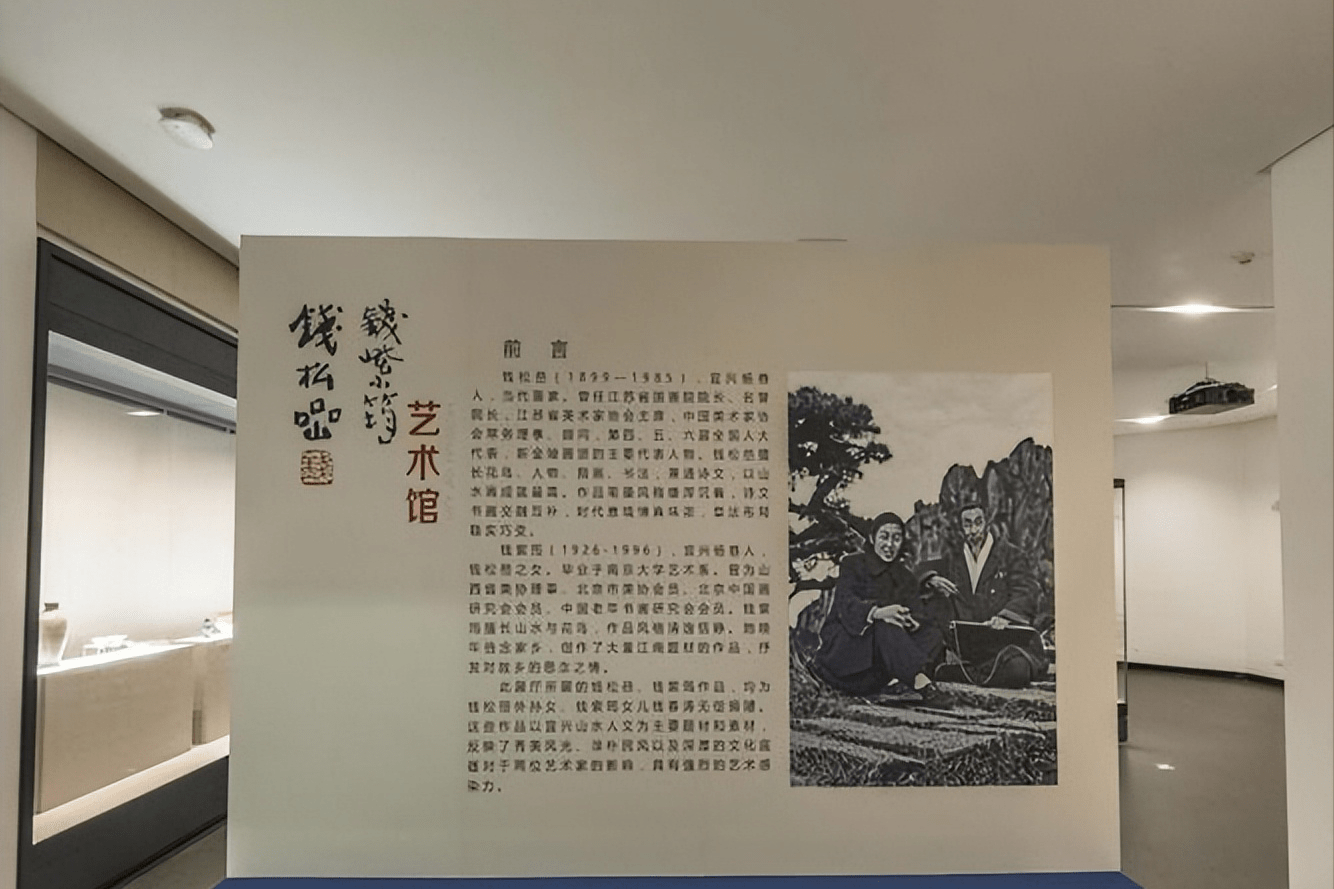 錢松喦
錢紫筠
艺术馆
前 言
钱松喦(1899—1985),宜兴杨巷
人,当代画家。曾任江苏省国画院院长、名誉
院长,江苏省美术家协会主席,中国美术家协
会常务理事、顾问,第四、五、六届全国人大
代表,新金陵画派的主要代表人物。钱松喦擅
长花鸟、人物、指画、书法,兼通诗文,以山
水画成就最高。作品笔墨风格雄浑沉着,诗文
书画交融互补,时代意境情真味浓,章法布局
稳实巧变。
钱紫筠(1926-1996),宜兴杨巷人,
钱松喦之女。毕业于南京大学艺术系。曾为山
西省美协理事、北京市美协会员、北京中国画
研究会会员、中国老年书画研究会会员。钱紫
筠擅长山水与花鸟,作品风格清逸恬静。她晚
年眷念家乡,创作了大量江南题材的作品,抒
发对故乡的思念之情。
此展厅所展的钱松喦、钱紫筠作品,均为
钱松喦外孙女、钱紫筠女儿钱春涛无偿捐赠。
这些作品以宜兴山水人文为主要题材和素材,
反映了秀美风光、淳朴民风以及深厚的文化底
蕴对于两位艺术家的影响,具有强烈的艺术感
染力。